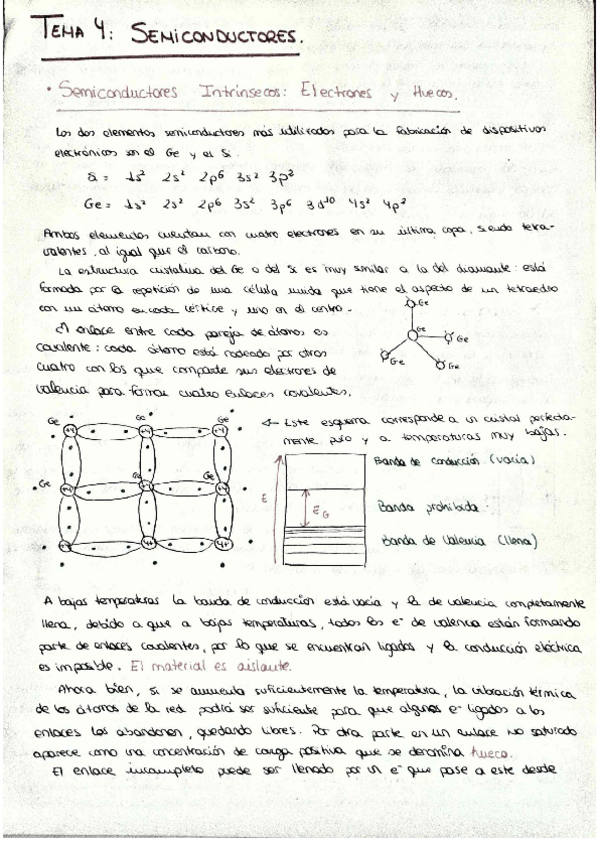 TEMA 4: SEMICONDUCTORES.
• Semiconductores Intrínsecos: Electrones y Huecos.
Los dos elementos semiconductores más utilizados para la fabricación de dispositivos
electrónicos son el Ge y el Si.
Si = 1s² 2s² 2p⁶ 3s² 3p²
Ge = 1s² 2s² 2p⁶ 3s² 3p⁶ 3d¹⁰ 4s² 4p²
Ambos elementos cuentan con cuatro electrones en su última capa, siendo tetra-
valentes, al igual que el carbono.
La estructura cristalina del Ge o del Si es muy similar a la del diamante: está
formada por la repetición de una célula unida que tiene el aspecto de un tetraedro
con un átomo en cada vértice y uno en el centro.
El enlace entre cada pareja de átomos es
covalente: cada átomo está rodeado por otros
cuatro con los que comparte sus electrones de
valencia para formar cuatro enlaces covalentes.
Ge
Ge
Ge
Ge
Ge
Ge Ge Ge
+4 +4 +4
Ge Ge Ge
+4 +4 +4
+4 4+ 4+
← Este esquema corresponde a un cristal perfecta-
mente puro y a temperaturas muy bajas.
E
E_G
Banda de conducción (vacía)
Banda prohibida
Banda de Valencia (llena)
A bajas temperaturas la banda de conducción está vacía y la de valencia completamente
llena, debido a que a bajas temperaturas, todos los e⁻ de valencia están formando
parte de enlaces covalentes, por lo que se encuentran ligados y la conducción eléctrica
es imposible. El material es aislante.
Ahora bien, si se aumenta suficientemente la temperatura, la vibración térmica
de los átomos de la red podrá ser suficiente para que algunos e⁻ ligados a los
enlaces los abandonen, quedando libres. Por otra parte en un enlace no saturado
aparece como una concentración de carga positiva que se denomina hueco.
El enlace incompleto puede ser llenado por un e⁻ que pase a este desde